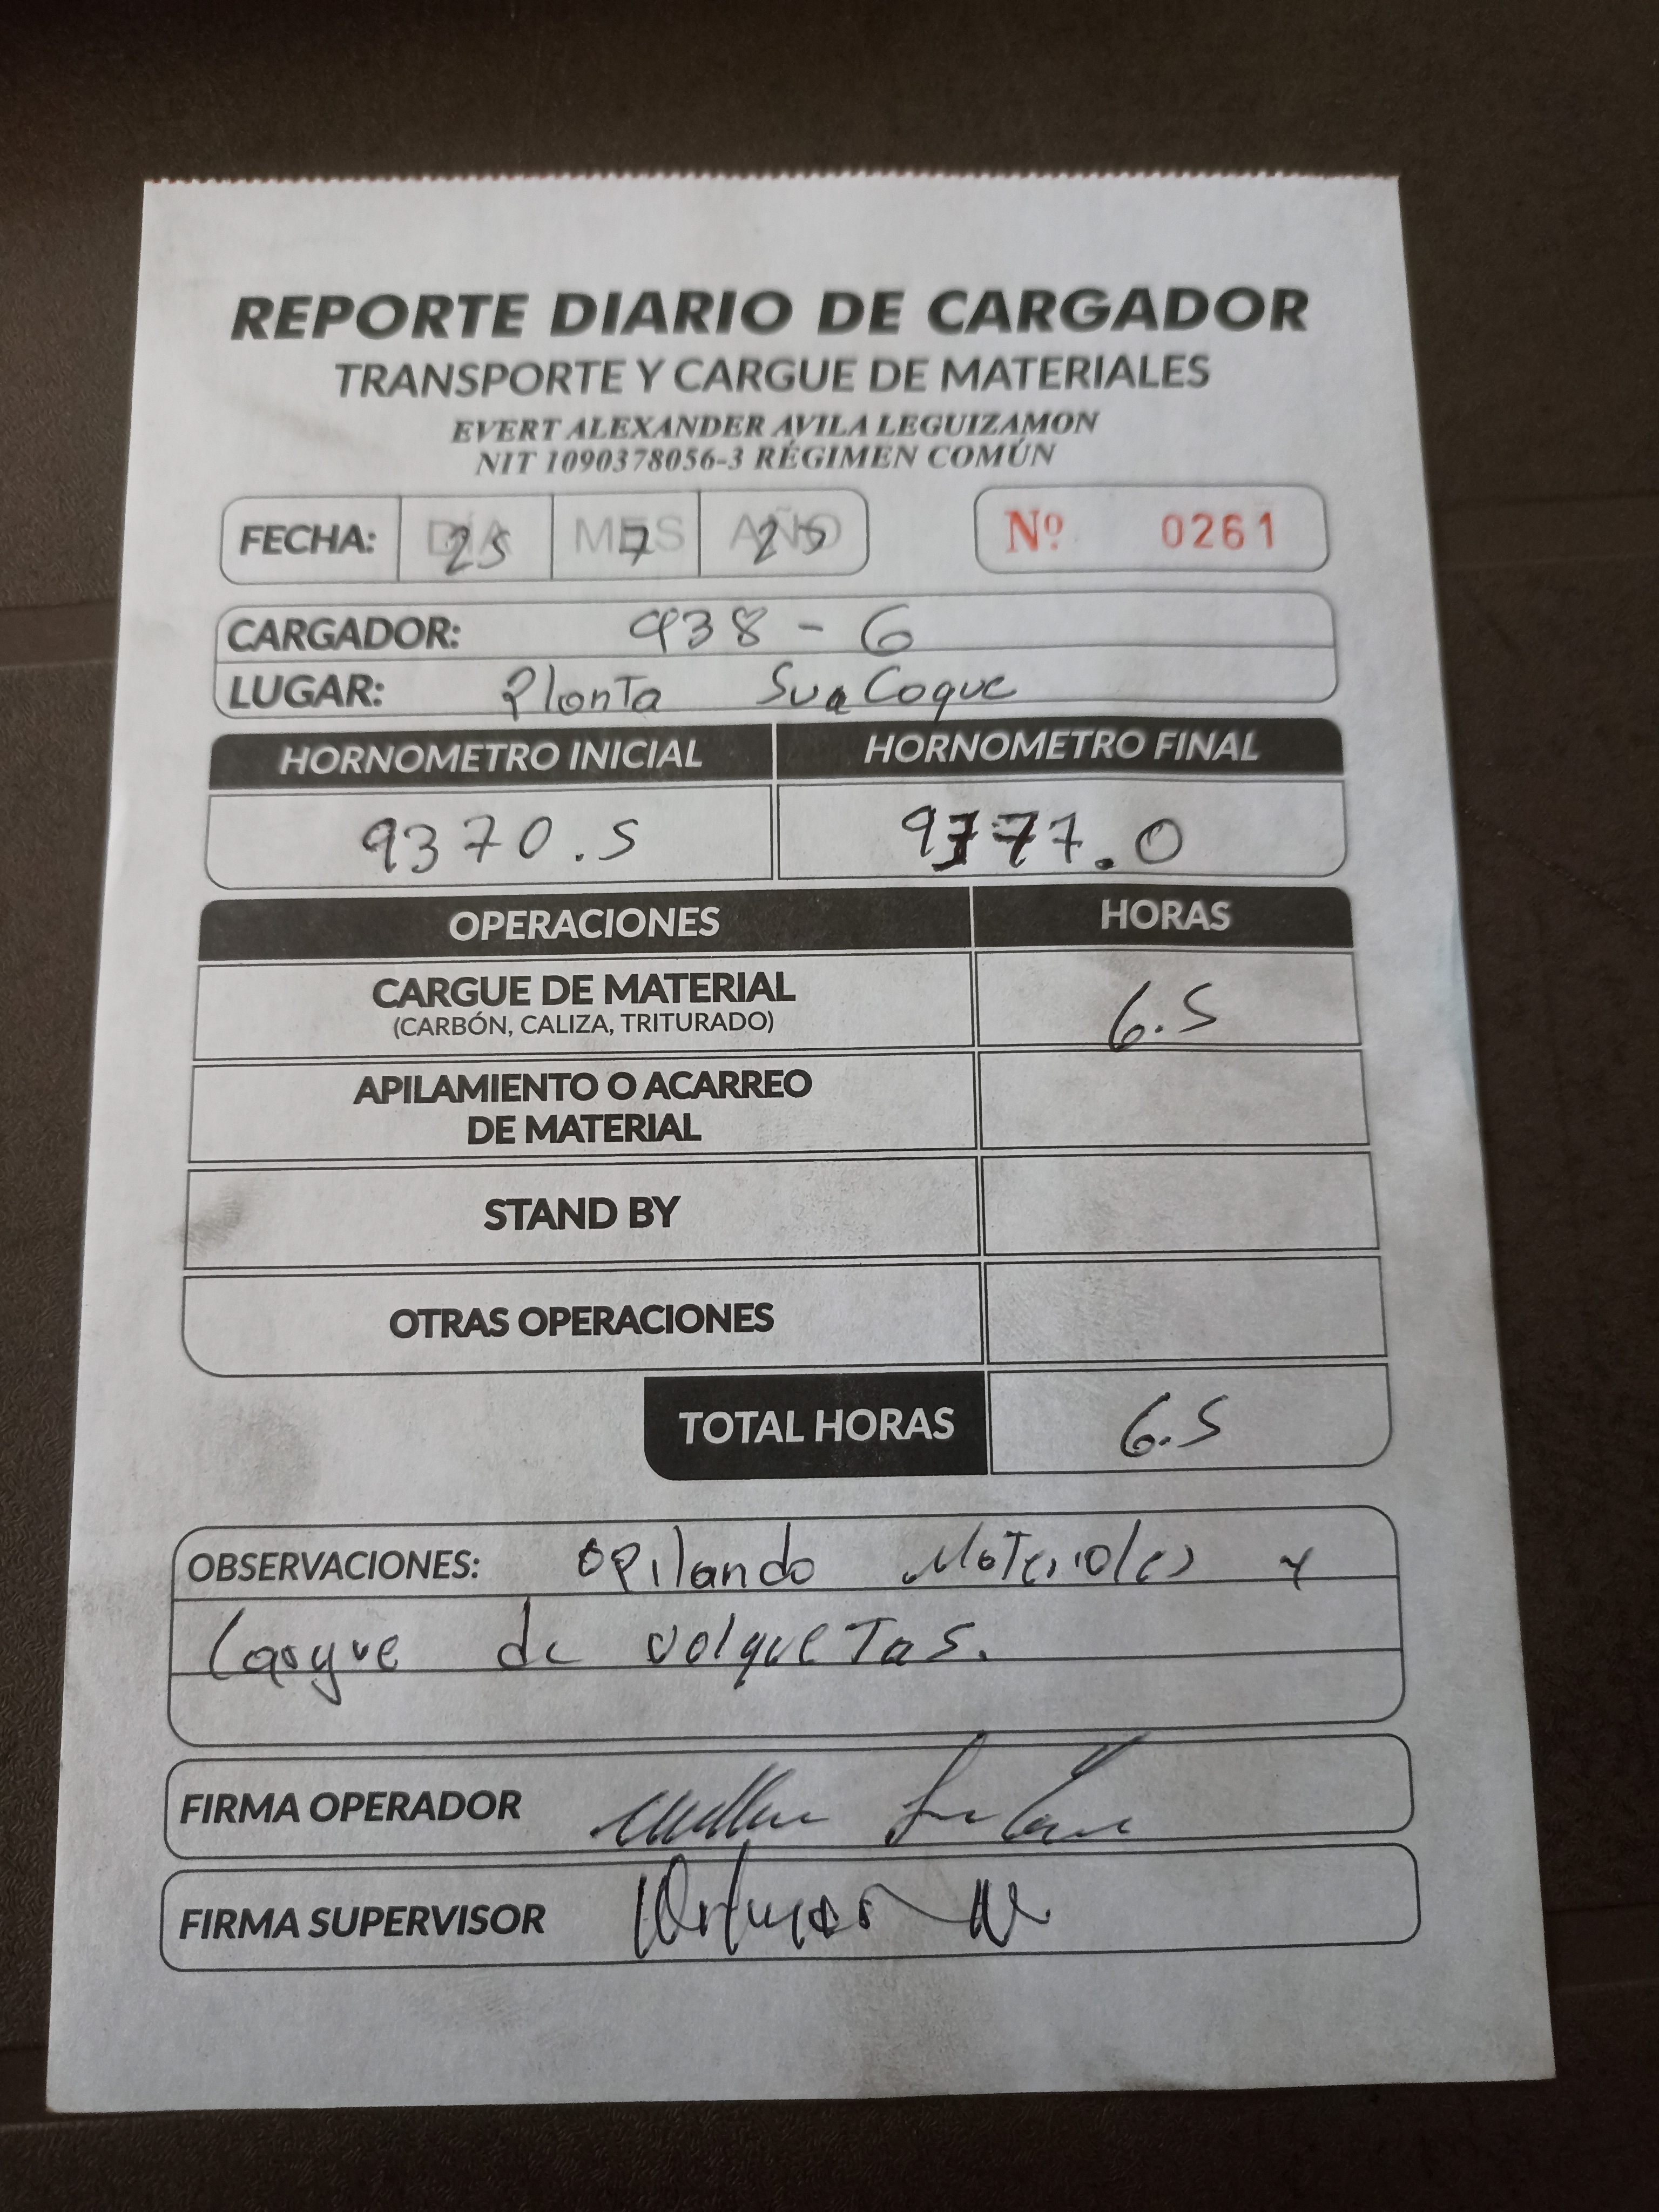 REPORTE DIARIO DE CARGADOR
TRANSPORTE Y CARGUE DE MATERIALES
EVERT ALEXANDER AVILA LEGUIZAMON
NIT 1090378056-3 RÉGIMEN COMÚN
FECHA: DÍA 25 MES 7 AÑO 25 Nº 0261
CARGADOR: 938 - G
LUGAR: Planta SuaCoque
HORNOMETRO INICIAL HORNOMETRO FINAL
9370.5 9377.0
OPERACIONES HORAS
CARGUE DE MATERIAL 6.5
(CARBÓN, CALIZA, TRITURADO)
APILAMIENTO O ACARREO
DE MATERIAL
STAND BY
OTRAS OPERACIONES
TOTAL HORAS 6.5
OBSERVACIONES: apilando Materiales y
Cargue de volquetas.
FIRMA OPERADOR
FIRMA SUPERVISOR